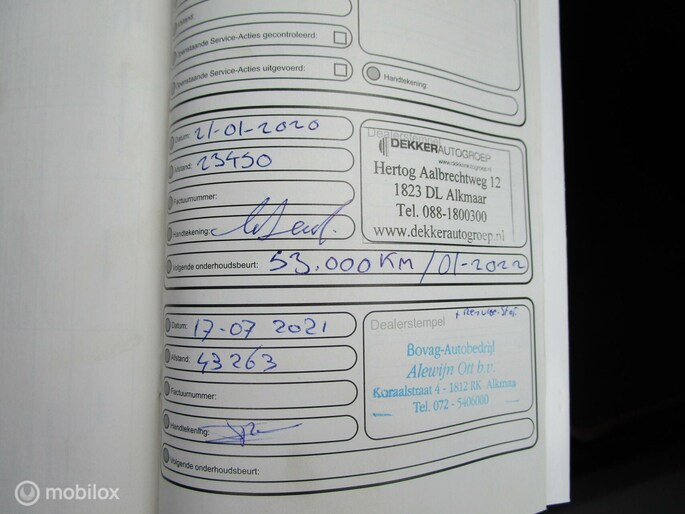 Afstand:
Openstaande Service-Acties gecontroleerd:
Openstaande Service-Acties uitgevoerd:
Handtekening:
Datum: 21-01-2020
Afstand: 23450
Factuurnummer:
Handtekening:
Volgende onderhoudsbeurt: 53.000 KM / 01-2022
Dealerstempel
DEKKERAUTOGROEP
www.dekkerautogroep.nl
Hertog Aalbrechtweg 12
1823 DL Alkmaar
Tel. 088-1800300
www.dekkerautogroep.nl
Datum: 17-07 2021
Afstand: 43263
Factuurnummer:
Handtekening:
Volgende onderhoudsbeurt:
Dealerstempel
Bovag-Autobedrijf
Alewijn Ott b.v.
Koraalstraat 4 - 1812 RK Alkmaar
Tel. 072 - 5406000
mobilox